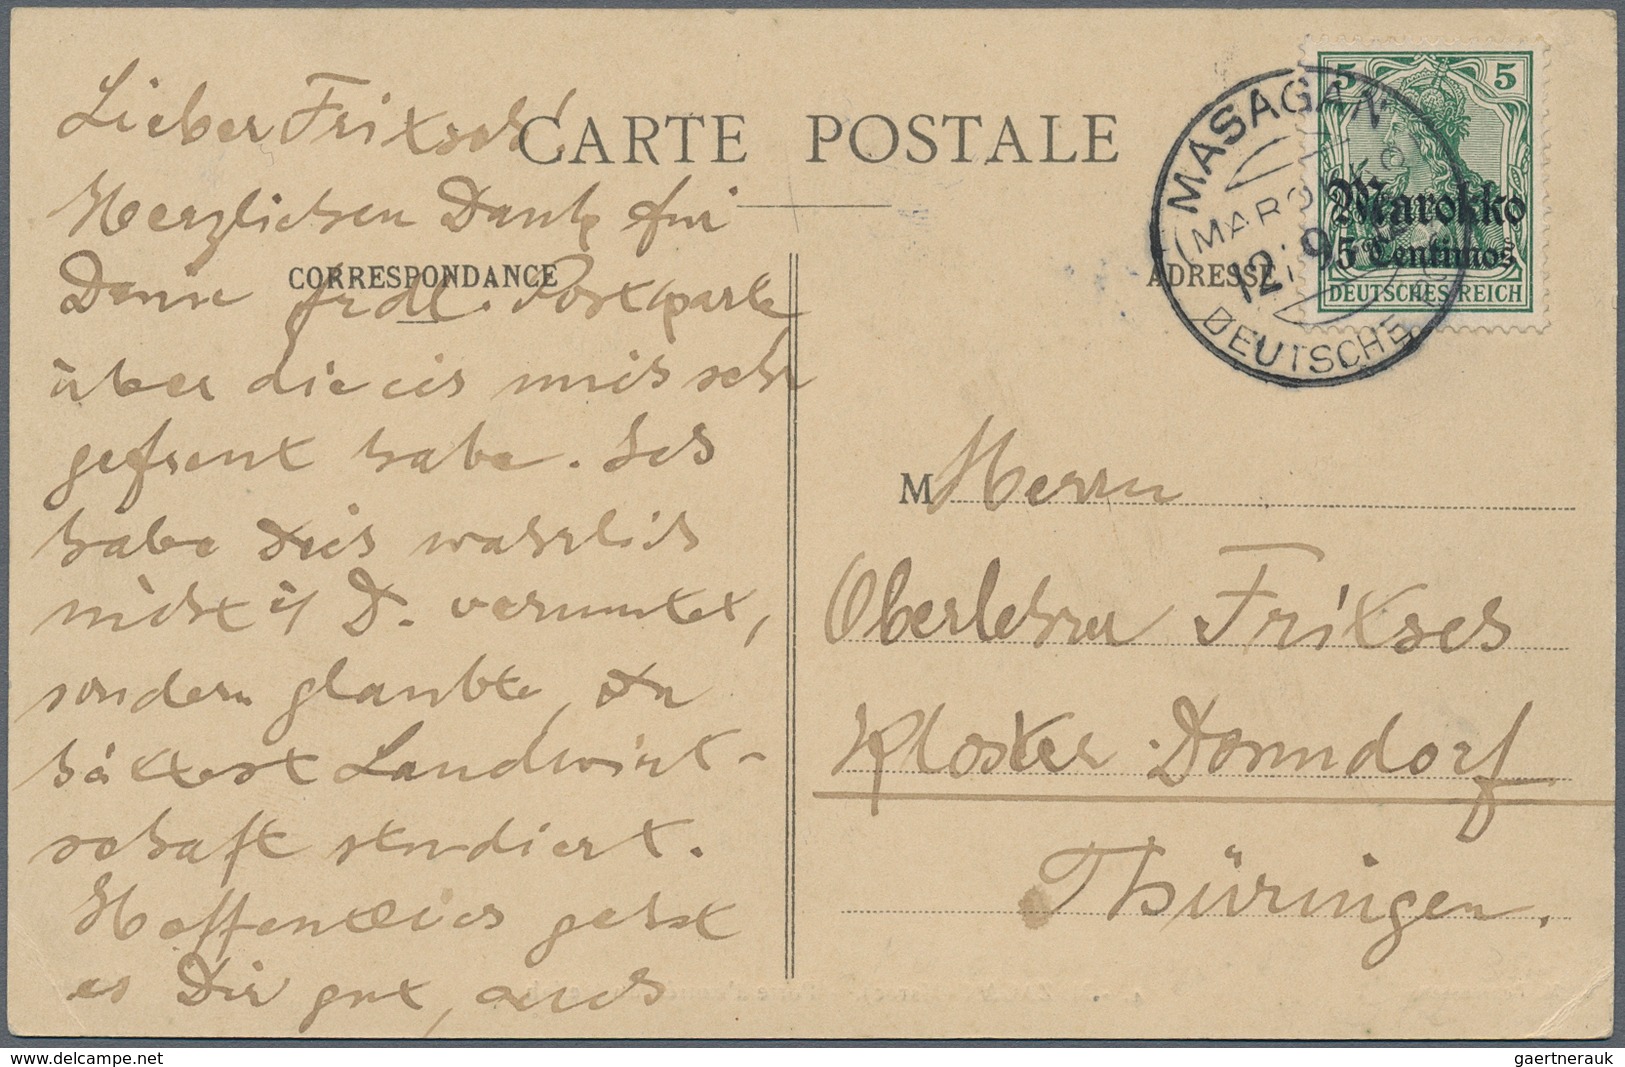 CARTE POSTALE
CORRESPONDANCE
ADRESSE
Lieber Fritsch!
Herzlichen Dank für
Deine frdl. Postkarte
über die ich mich sehr
gefreut habe. Ich
habe Dich wahrlich
nicht i/ D. vermutet,
sondern glaubte, Du
hättest Landwirt-
schaft studiert.
Hoffentlich geht
es Dir gut, auch
5 5
Marokko
5 Centimos
DEUTSCHES REICH
MASAGAN
MAROKKO
12.9.12
DEUTSCHE
M Herrn
Oberlehrer Fritsch
Kloster Donndorf
Thüringen.
www.delcampe.net
gaertnerauk